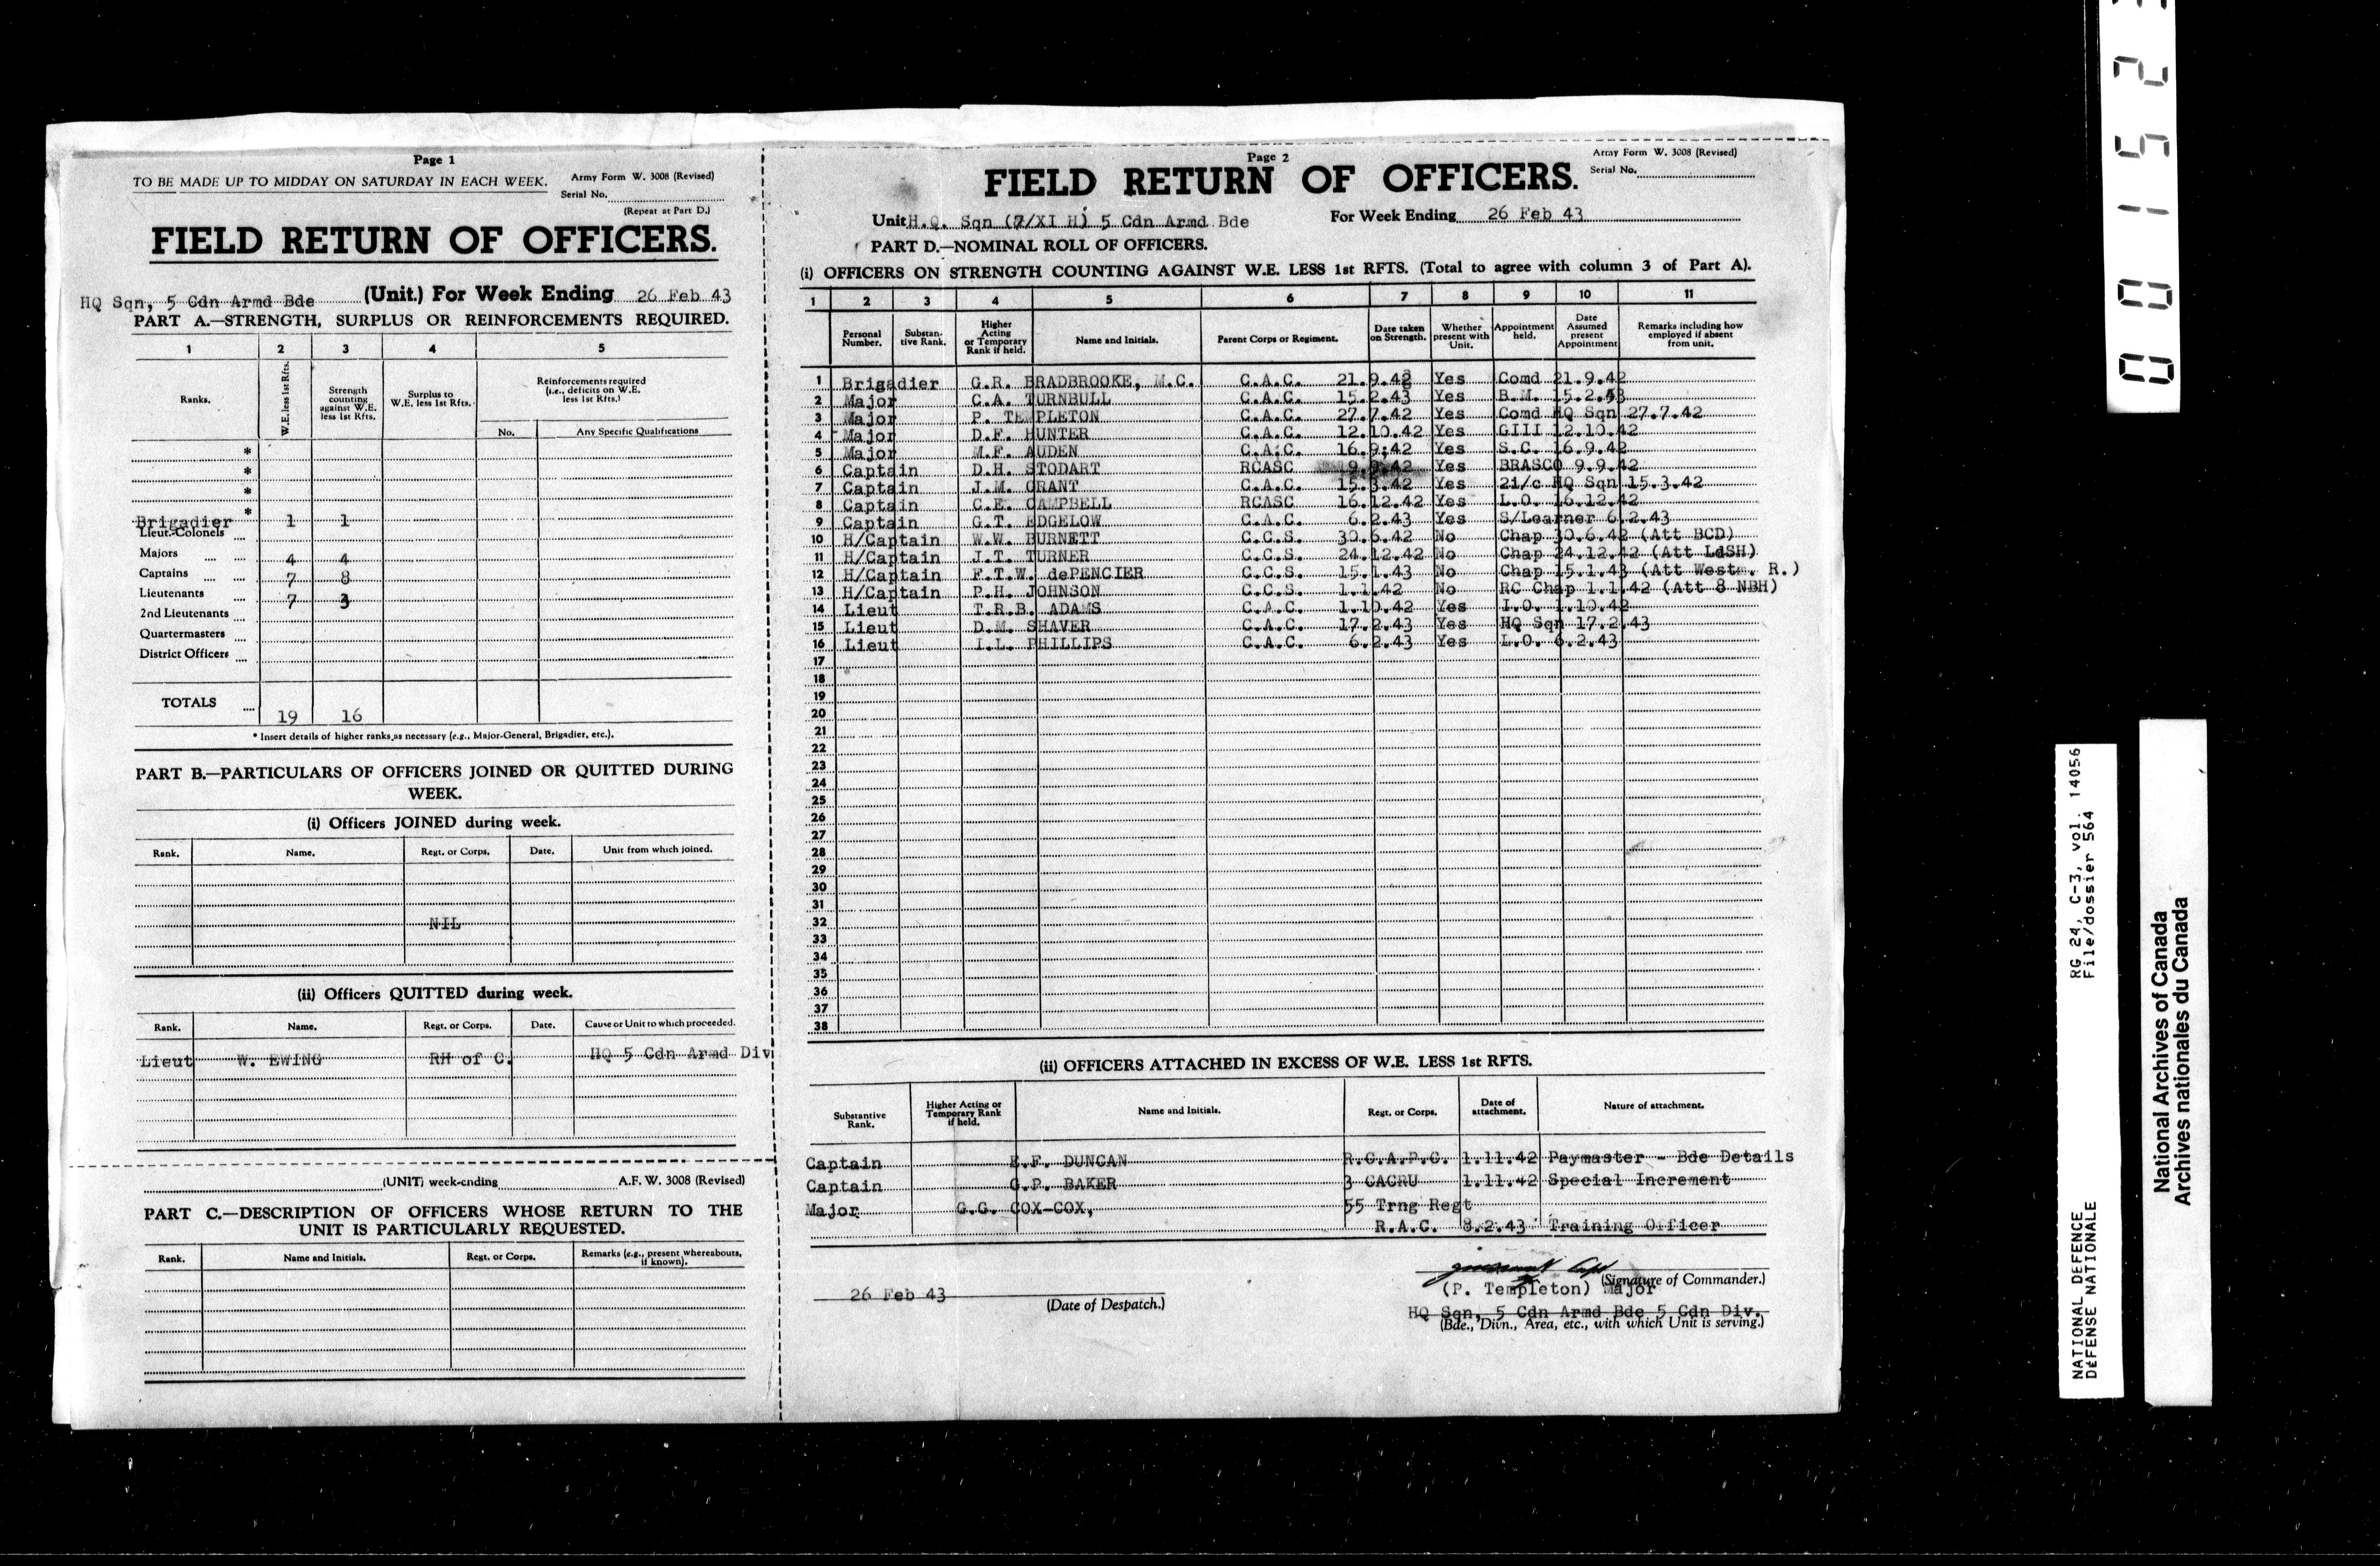 Page 1
TO BE MADE UP TO MIDDAY ON SATURDAY IN EACH WEEK. Army Form W. 3008 (Revised)
Serial No.
(Repeat at Part D.)
FIELD RETURN OF OFFICERS.
HQ Sqn, 5 Cdn Armd Bde (Unit.) For Week Ending 26 Feb 43
PART A.—STRENGTH, SURPLUS OR REINFORCEMENTS REQUIRED.
1 2 3 4 5
Ranks. W.E. less 1st Rfts. Strength counting against W.E. less 1st Rfts. Surplus to W.E. less 1st Rfts. Reinforcements required (i.e., deficits on W.E. less 1st Rfts.)
No. Any Specific Qualifications
*
*
*
*
Brigadier 1 1
Lieut.-Colonels
Majors 4 4
Captains 7 8
Lieutenants 7 3
2nd Lieutenants
Quartermasters
District Officers
TOTALS 19 16
* Insert details of higher ranks as necessary (e.g., Major-General, Brigadier, etc.).
PART B.—PARTICULARS OF OFFICERS JOINED OR QUITTED DURING
WEEK.
(i) Officers JOINED during week.
Rank. Name. Regt. or Corps. Date. Unit from which joined.
NIL
(ii) Officers QUITTED during week.
Rank. Name. Regt. or Corps. Date. Cause or Unit to which proceeded.
Lieut W. EWING RH of C. HQ 5 Cdn Armd Div
(UNIT) week-ending A.F. W. 3008 (Revised)
PART C.—DESCRIPTION OF OFFICERS WHOSE RETURN TO THE
UNIT IS PARTICULARLY REQUESTED.
Rank. Name and Initials. Regt. or Corps. Remarks (e.g., present whereabouts, if known).
Page 2
Army Form W. 3008 (Revised)
Serial No.
FIELD RETURN OF OFFICERS.
Unit H.Q. Sqn (7/XI H) 5 Cdn Armd Bde For Week Ending 26 Feb 43
PART D.—NOMINAL ROLL OF OFFICERS.
(i) OFFICERS ON STRENGTH COUNTING AGAINST W.E. LESS 1st RFTS. (Total to agree with column 3 of Part A).
1 2 3 4 5 6 7 8 9 10 11
Personal Number. Substan-tive Rank. Higher Acting or Temporary Rank if held. Name and Initials. Parent Corps or Regiment. Date taken on Strength. Whether present with Unit. Appointment held. Date Assumed present Appointment Remarks including how employed if absent from unit.
1 Brigadier G.R. BRADBROOKE, M.C. C.A.C. 21.9.42 Yes Comd 21.9.42
2 Major C.A. TURNBULL C.A.C. 15.2.43 Yes B.M. 15.2.43
3 Major P. TEMPLETON C.A.C. 27.7.42 Yes Comd HQ Sqn 27.7.42
4 Major D.F. HUNTER C.A.C. 12.10.42 Yes GIII 12.10.42
5 Major M.F. AUDEN C.A.C. 16.9.42 Yes S.C. 16.9.42
6 Captain D.H. STODART RCASC 9.9.42 Yes BRASCO 9.9.42
7 Captain J.M. GRANT C.A.C. 15.3.42 Yes 2i/c HQ Sqn 15.3.42
8 Captain C.E. CAMPBELL RCASC 16.12.42 Yes L.O. 16.12.42
9 Captain G.T. EDGELOW C.A.C. 6.2.43 Yes S/Learner 6.2.43
10 H/Captain W.W. BURNETT C.C.S. 30.6.42 No Chap 30.6.42 (Att BCD)
11 H/Captain J.T. TURNER C.C.S. 24.12.42 No Chap 24.12.42 (Att LdSH)
12 H/Captain F.T.W. dePENCIER C.C.S. 15.1.43 No Chap 15.1.43 (Att Westm. R.)
13 H/Captain P.H. JOHNSON C.C.S. 1.1.42 No RC Chap 1.1.42 (Att 8 NBH)
14 Lieut T.R.B. ADAMS C.A.C. 1.10.42 Yes I.O. 1.10.42
15 Lieut D.M. SHAVER C.A.C. 17.2.43 Yes HQ Sqn 17.2.43
16 Lieut I.L. PHILLIPS C.A.C. 6.2.43 Yes L.O. 6.2.43
17
18
19
20
21
22
23
24
25
26
27
28
29
30
31
32
33
34
35
36
37
38
(ii) OFFICERS ATTACHED IN EXCESS OF W.E. LESS 1st RFTS.
Substantive Rank. Higher Acting or Temporary Rank if held. Name and Initials. Regt. or Corps. Date of attachment. Nature of attachment.
Captain E.F. DUNCAN R.C.A.P.C. 1.11.42 Paymaster - Bde Details
Captain G.P. BAKER 3 CACRU 1.11.42 Special Increment
Major G.G. COX-COX, 55 Trng Regt
R.A.C. 8.2.43 Training Officer
Capt (Signature of Commander.)
(P. Templeton) Major
26 Feb 43
(Date of Despatch.)
HQ Sqn, 5 Cdn Armd Bde 5 Cdn Div.
(Bde., Divn., Area, etc., with which Unit is serving.)
NATIONAL DEFENCE RG 24, C-3, vol. 14056
DÉFENSE NATIONALE File/dossier 564
National Archives of Canada
Archives nationales du Canada